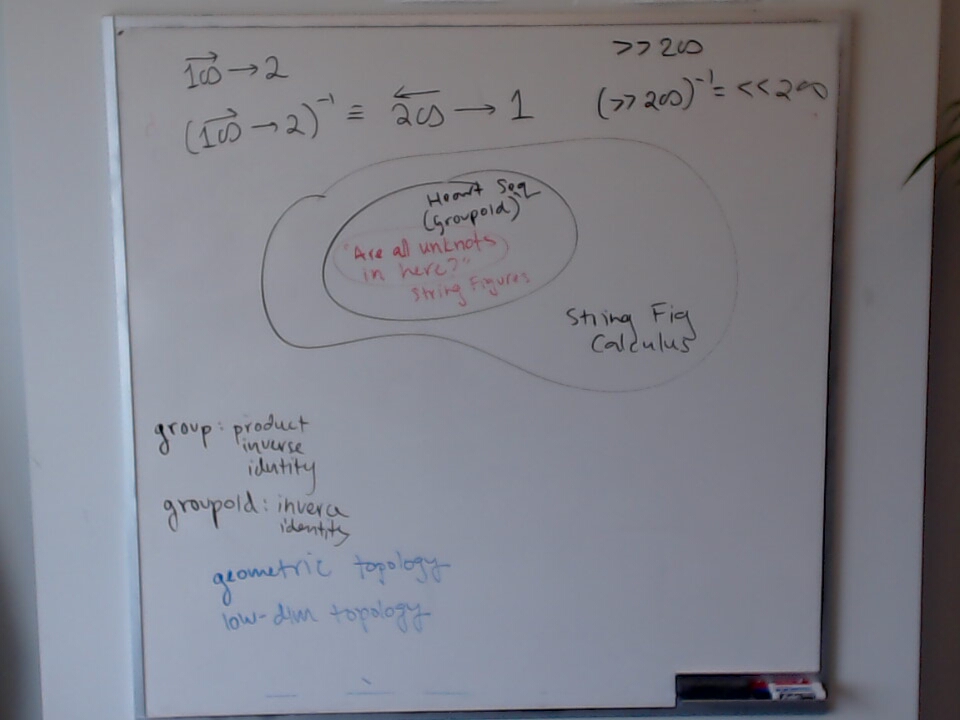 1∞ → 2
>> 2∞
(1∞ → 2)⁻¹ ≡ 2∞ → 1
(>> 2∞)⁻¹ = << 2∞
Heart Seq
(groupoid)
"Are all unknots
in here?"
String Figures
String Fig
Calculus
group: product
inverse
identity
groupoid: inverse
identity
geometric topology
low-dim topology